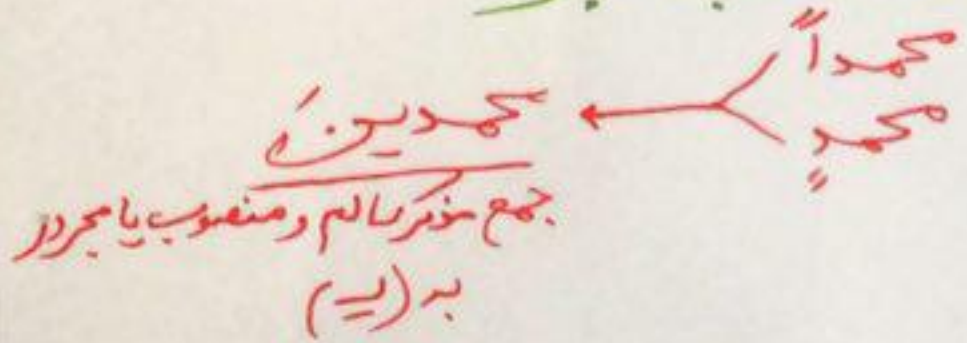 محمداً
محمدٍ
محمدینَ
جمع مذکر سالم و منصوب یا مجرور
به (یـ)